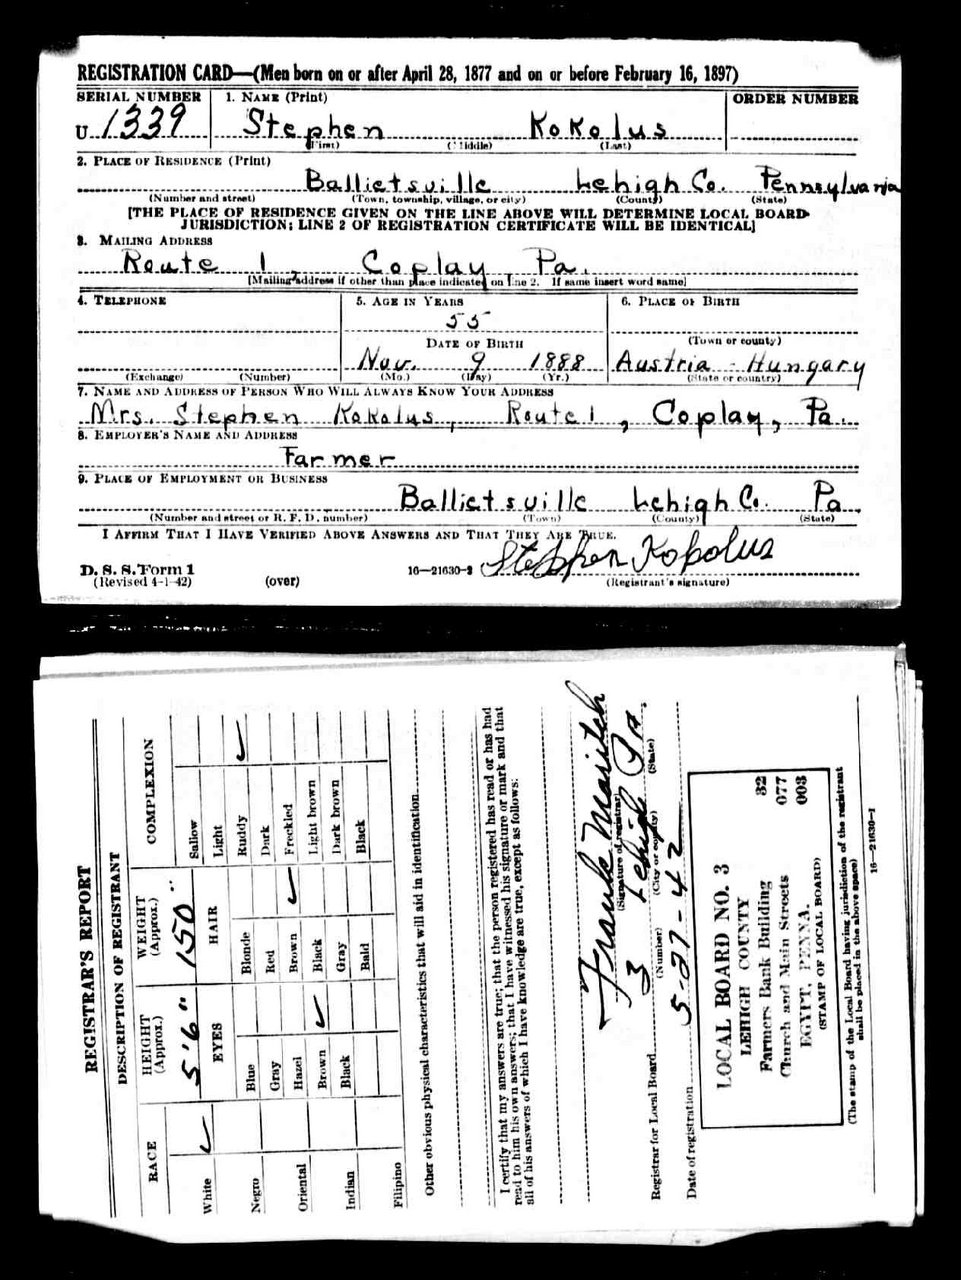 REGISTRATION CARD—(Men born on or after April 28, 1877 and on or before February 16, 1897)
SERIAL NUMBER 1. NAME (Print) ORDER NUMBER
U 1339 Stephen Kokolus
(First) (Middle) (Last)
2. PLACE OF RESIDENCE (Print)
Ballietsville Lehigh Co. Pennsylvania
(Number and street) (Town, township, village, or city) (County) (State)
[THE PLACE OF RESIDENCE GIVEN ON THE LINE ABOVE WILL DETERMINE LOCAL BOARD
JURISDICTION; LINE 2 OF REGISTRATION CERTIFICATE WILL BE IDENTICAL]
3. MAILING ADDRESS
Route 1, Coplay, Pa.
[Mailing address if other than place indicated on line 2. If same insert word same]
4. TELEPHONE 5. AGE IN YEARS 6. PLACE OF BIRTH
55
DATE OF BIRTH (Town or county)
Nov. 9 1888 Austria-Hungary
(Exchange) (Number) (Mo.) (Day) (Yr.) (State or country)
7. NAME AND ADDRESS OF PERSON WHO WILL ALWAYS KNOW YOUR ADDRESS
Mrs. Stephen Kokolus, Route 1, Coplay, Pa.
8. EMPLOYER'S NAME AND ADDRESS
Farmer
9. PLACE OF EMPLOYMENT OR BUSINESS
Ballietsville Lehigh Co. Pa
(Number and street or R. F. D. number) (Town) (County) (State)
I AFFIRM THAT I HAVE VERIFIED ABOVE ANSWERS AND THAT THEY ARE TRUE.
Stephen Kopolus
D. S. S. Form 1
(Revised 4-1-42) (over) 16—21630-2 (Registrant's signature)
REGISTRAR'S REPORT
DESCRIPTION OF REGISTRANT
RACE HEIGHT (Approx.) WEIGHT (Approx.) COMPLEXION
5'6" 150
White ✓ EYES HAIR Sallow
Light
Negro Blue Blonde Ruddy ✓
Gray Red Dark
Oriental Hazel Brown ✓ Freckled
Brown ✓ Black Light brown
Indian Black Gray Dark brown
Bald Black
Filipino
Other obvious physical characteristics that will aid in identification
I certify that my answers are true; that the person registered has read or has had
read to him his own answers; that I have witnessed his signature or mark and that
all of his answers of which I have knowledge are true, except as follows:
Frank Maritch
(Signature of registrar)
Registrar for Local Board 3 Lehigh Pa
(Number) (City or county) (State)
Date of registration 5-27-42
LOCAL BOARD NO. 3 32
LEHIGH COUNTY 077
Farmers Bank Building 003
Church and Main Streets
EGYPT, PENNA.
(STAMP OF LOCAL BOARD)
(The stamp of the Local Board having jurisdiction of the registrant
shall be placed in the above space)
16—21630-1